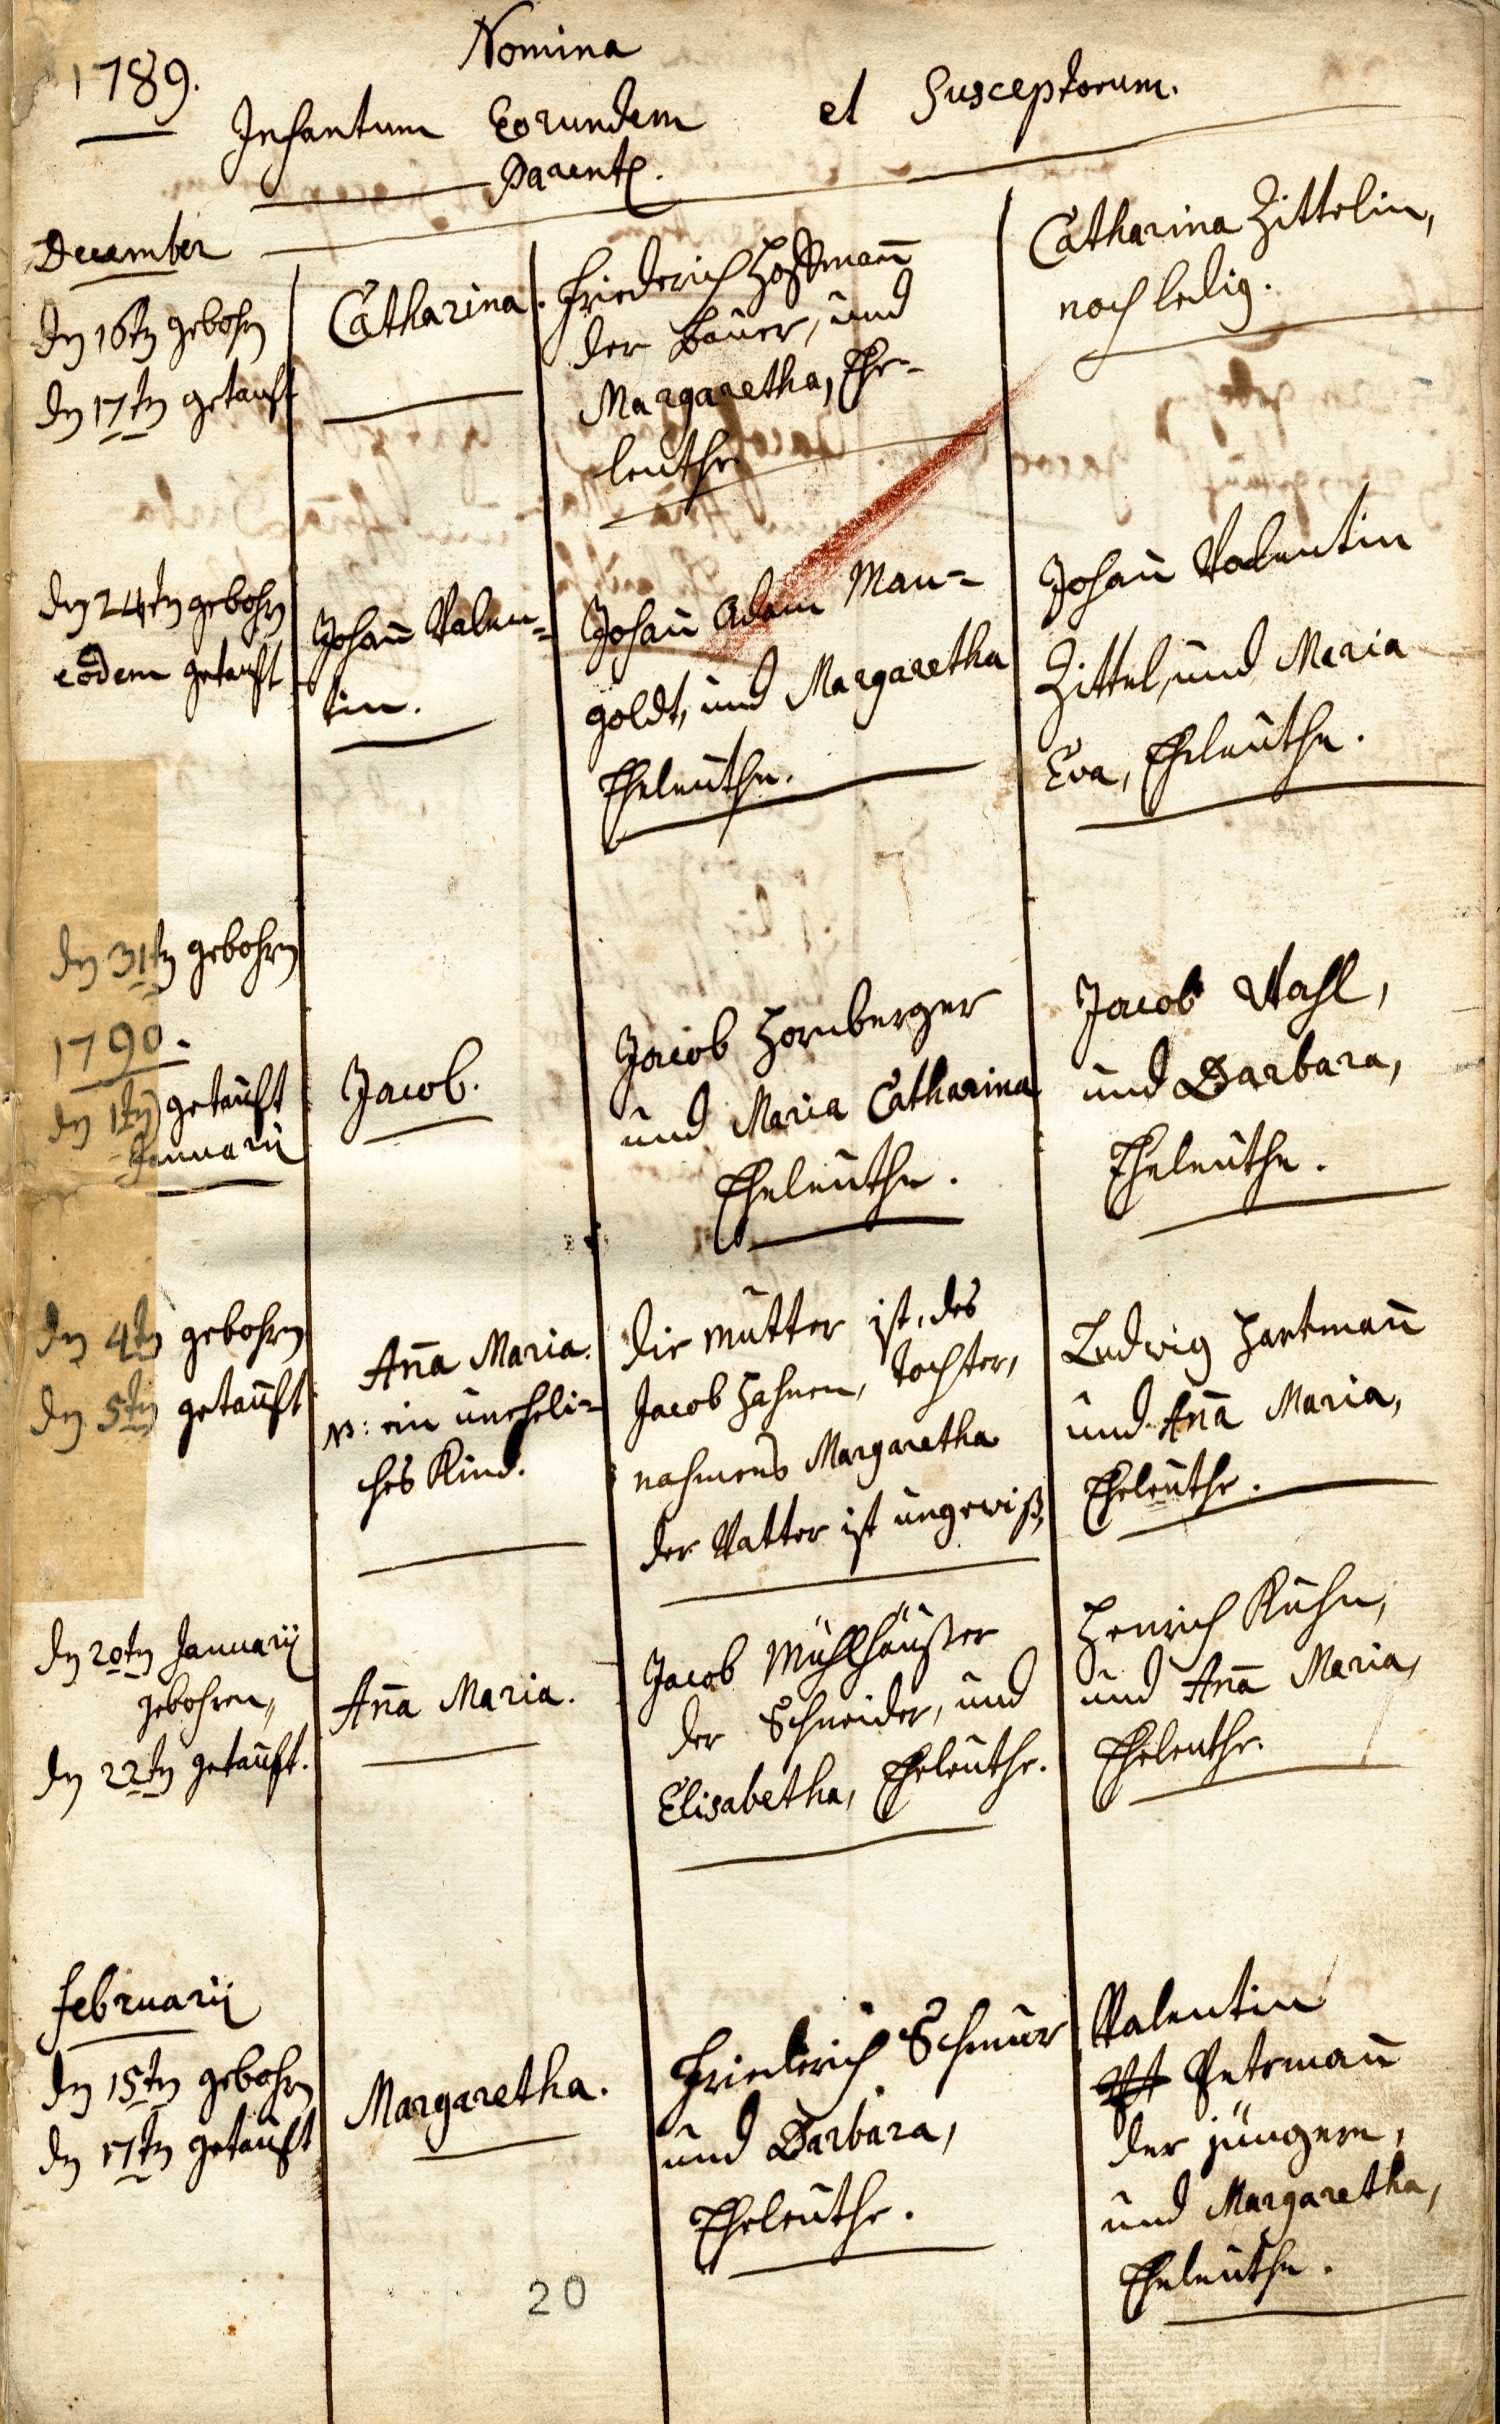 1789.
Nomina
Infantum Eorundem et Susceptorum.
Parent.
December
dn 16tn gebohrn
dn 17tn getauft
Catharina.
Friederich Hoffmañ
der Bauer, und
Margaretha, Ehe-
leuthe
Catharina Zittelin,
noch ledig.
dn 24tn gebohrn
eodem getauft
Johañ Valen=
tin.
Johañ Adam Man=
goldt, und Margaretha
Eheleuthe.
Johañ Valentin
Zittel, und Maria
Eva, Eheleuthe.
dn 31tn gebohrn
1790.
dn 1tn getauft
Januarii
Jacob.
Jacob Hornberger
und Maria Catharina
Eheleuthe.
Jacob Stahl,
und Barbara,
Eheleuthe.
dn 4tn gebohrn
dn 5tn getauft
Aña Maria.
NB: ein unehli=
ches Kind.
die Mutter ist, des
Jacob Hahnen, Tochter,
nahmens Margaretha
der Vatter ist ungewiß,
Ludwig Hartmañ
und Aña Maria,
Eheleuthe.
dn 20tn Januarii
gebohren,
dn 22tn getauft.
Aña Maria.
Jacob Mühlhäußer
der Schneider, und
Elisabetha, Eheleuthe.
Henrich Kuhn,
und Aña Maria,
Eheleuthe.
Februarii
dn 15tn gebohrn
dn 17tn getauft
Margaretha.
Friederich Schnur
und Barbara,
Eheleuthe.
Valentin
Petrmañ
der jüngere,
und Margaretha,
Eheleuthe.
20